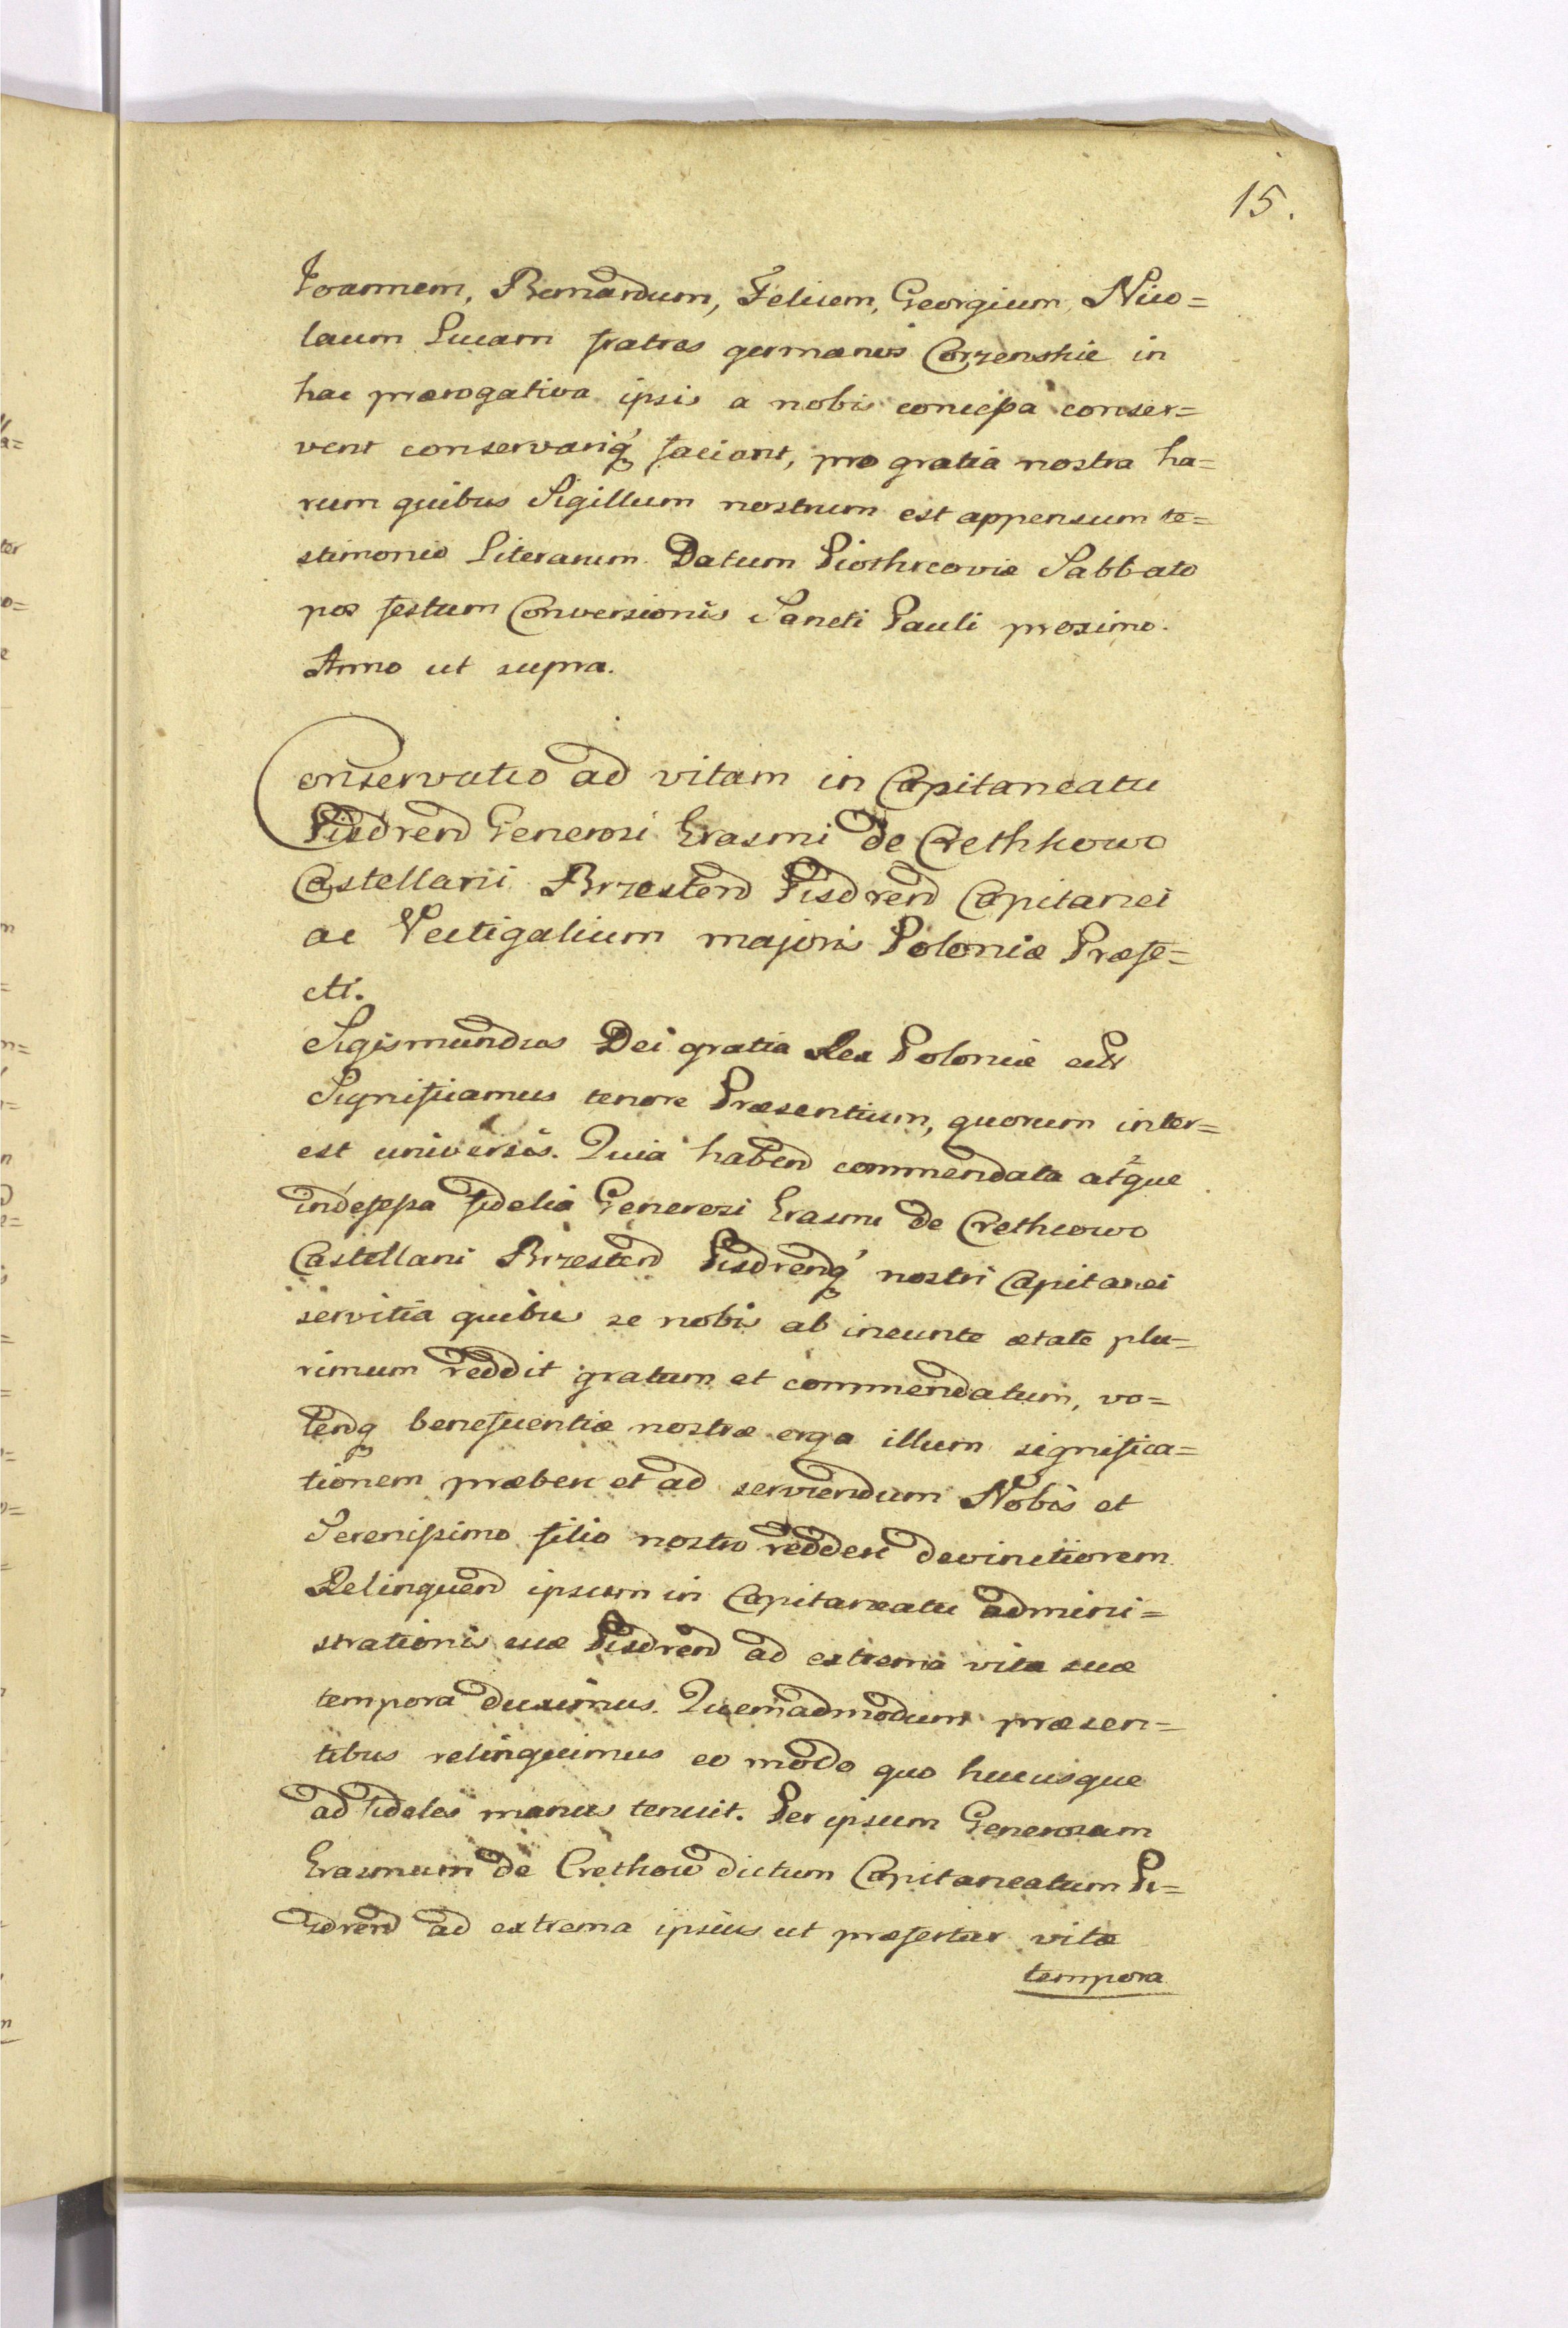 15.
Joannem, Bernardum, Felicem, Georgium, Nico=
laum Lucam fratres germanos Corzenskie in
hac prærogativa ipsis a nobis concessa conser=
vent conservariq́ faciant, pro gratia nostra ha=
rum quibus Sigillum nostrum est appensum te=
stimonio Literarum. Datum Piothrcoviæ Sabbato
pos festum Conversionis Sancti Pauli proximo.
Anno ut supra.
Conservatio ad vitam in Capitaneatu
Pisdren Generosi Erasmi de Crethkowo
Castellani Brzesten Pisdren Capitanei
ac Vectigalium majoris Poloniæ Præfe=
cti.
Sigismundus Dei gratia Rex Poloniæ etc
Significamus tenore Præsentium, quorum inter=
est universis. Quia haben commendata atque
indefessa fidelia Generosi Erasmi de Crethcowo
Castellani Brzesten Pisdrenq́ nostri Capitanei
servitia quibus se nobis ab ineunte ætate plu=
rimum reddit gratum et commendatum, vo=
lenq benefcientiæ nostræ erga illum significa=
tionem præbere et ad serviendum Nobis et
Serenissimo filio nostro reddere devinctiorem
Relinquen ipsum in Capitaneatu admini=
strationis suæ Pisdren ad extrema vitæ suæ
tempora duximus. Quemadmodum præsen=
tibus relinquimus eo modo quo hucusque
ad fideles manus tenuit. Per ipsum Generosum
Erasmum de Crethow dictum Capitaneatum Pi=
sdren ad extrema ipsius ut præfertur vitæ
tempora